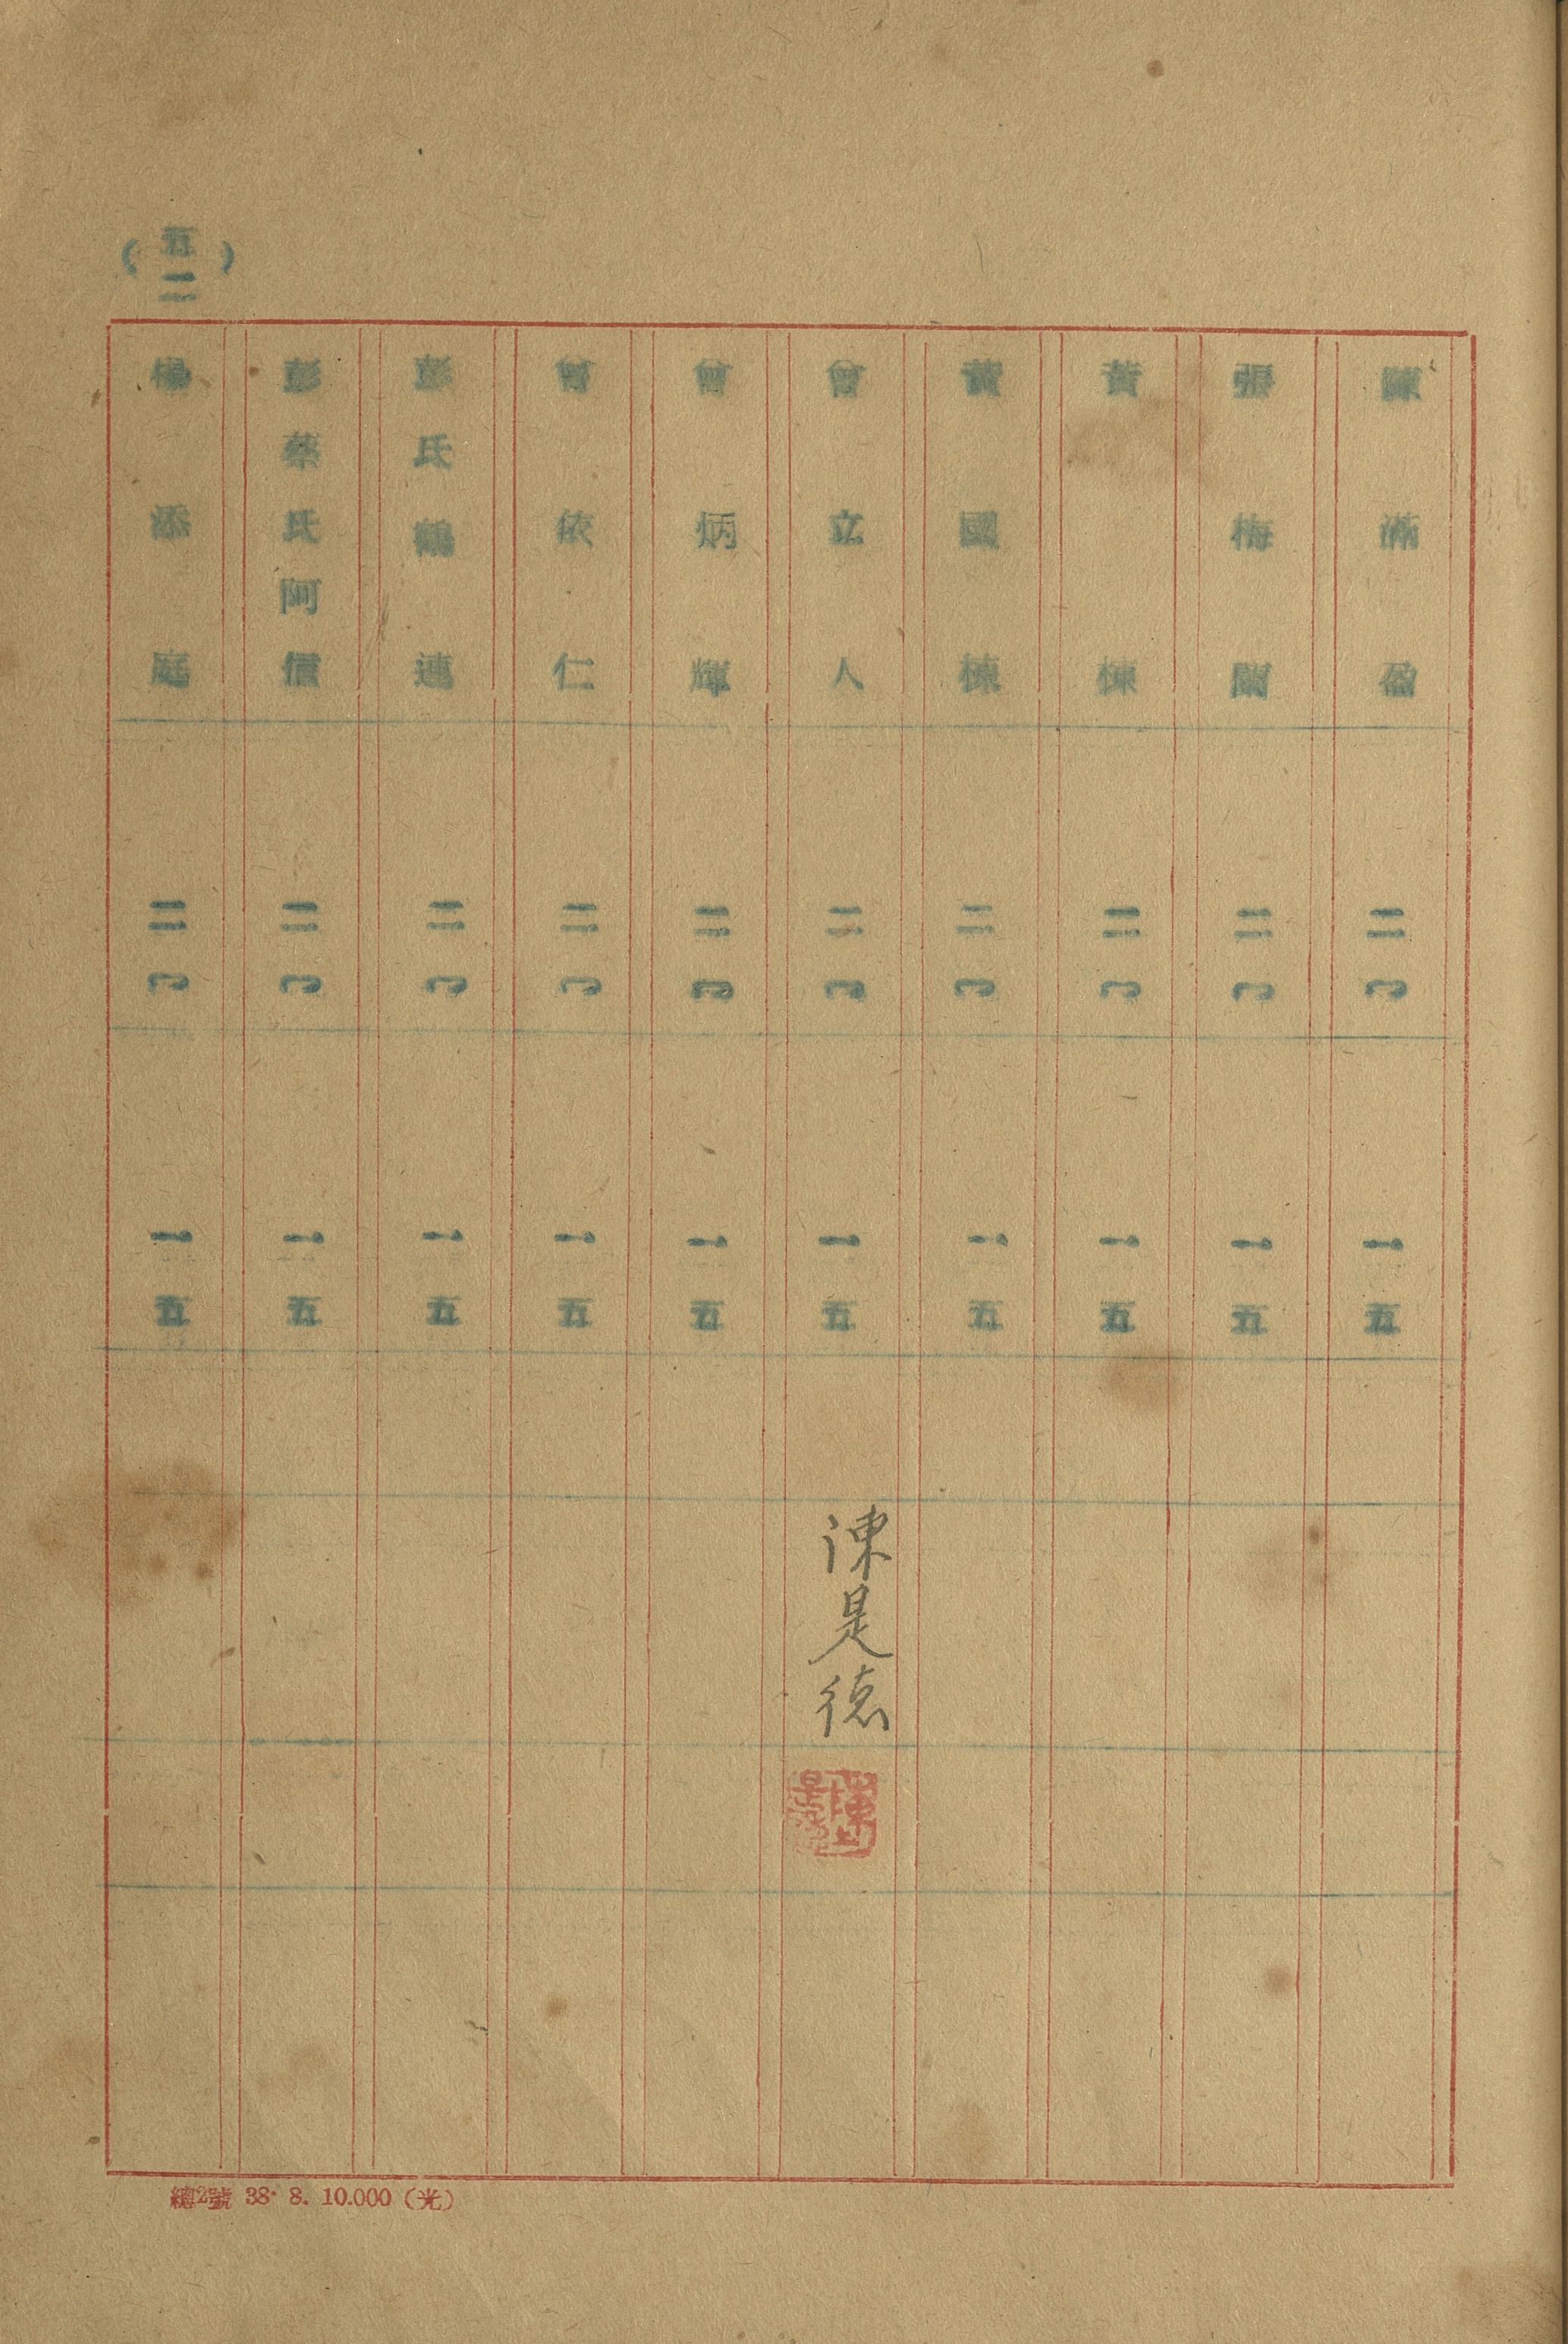 陳滿盈 二コ 一五
張梅蘭 二コ 一五
黃棟 二コ 一五
黃國棟 二コ 一五
曾立人 二コ 一五 陳是德
曾炳輝 二コ 一五
曾依仁 二コ 一五
彭氏鶴連 二コ 一五
彭蔡氏阿信 二コ 一五
楊添庭 二コ 一五
(五二)
總2號 38. 8. 10.000（光）